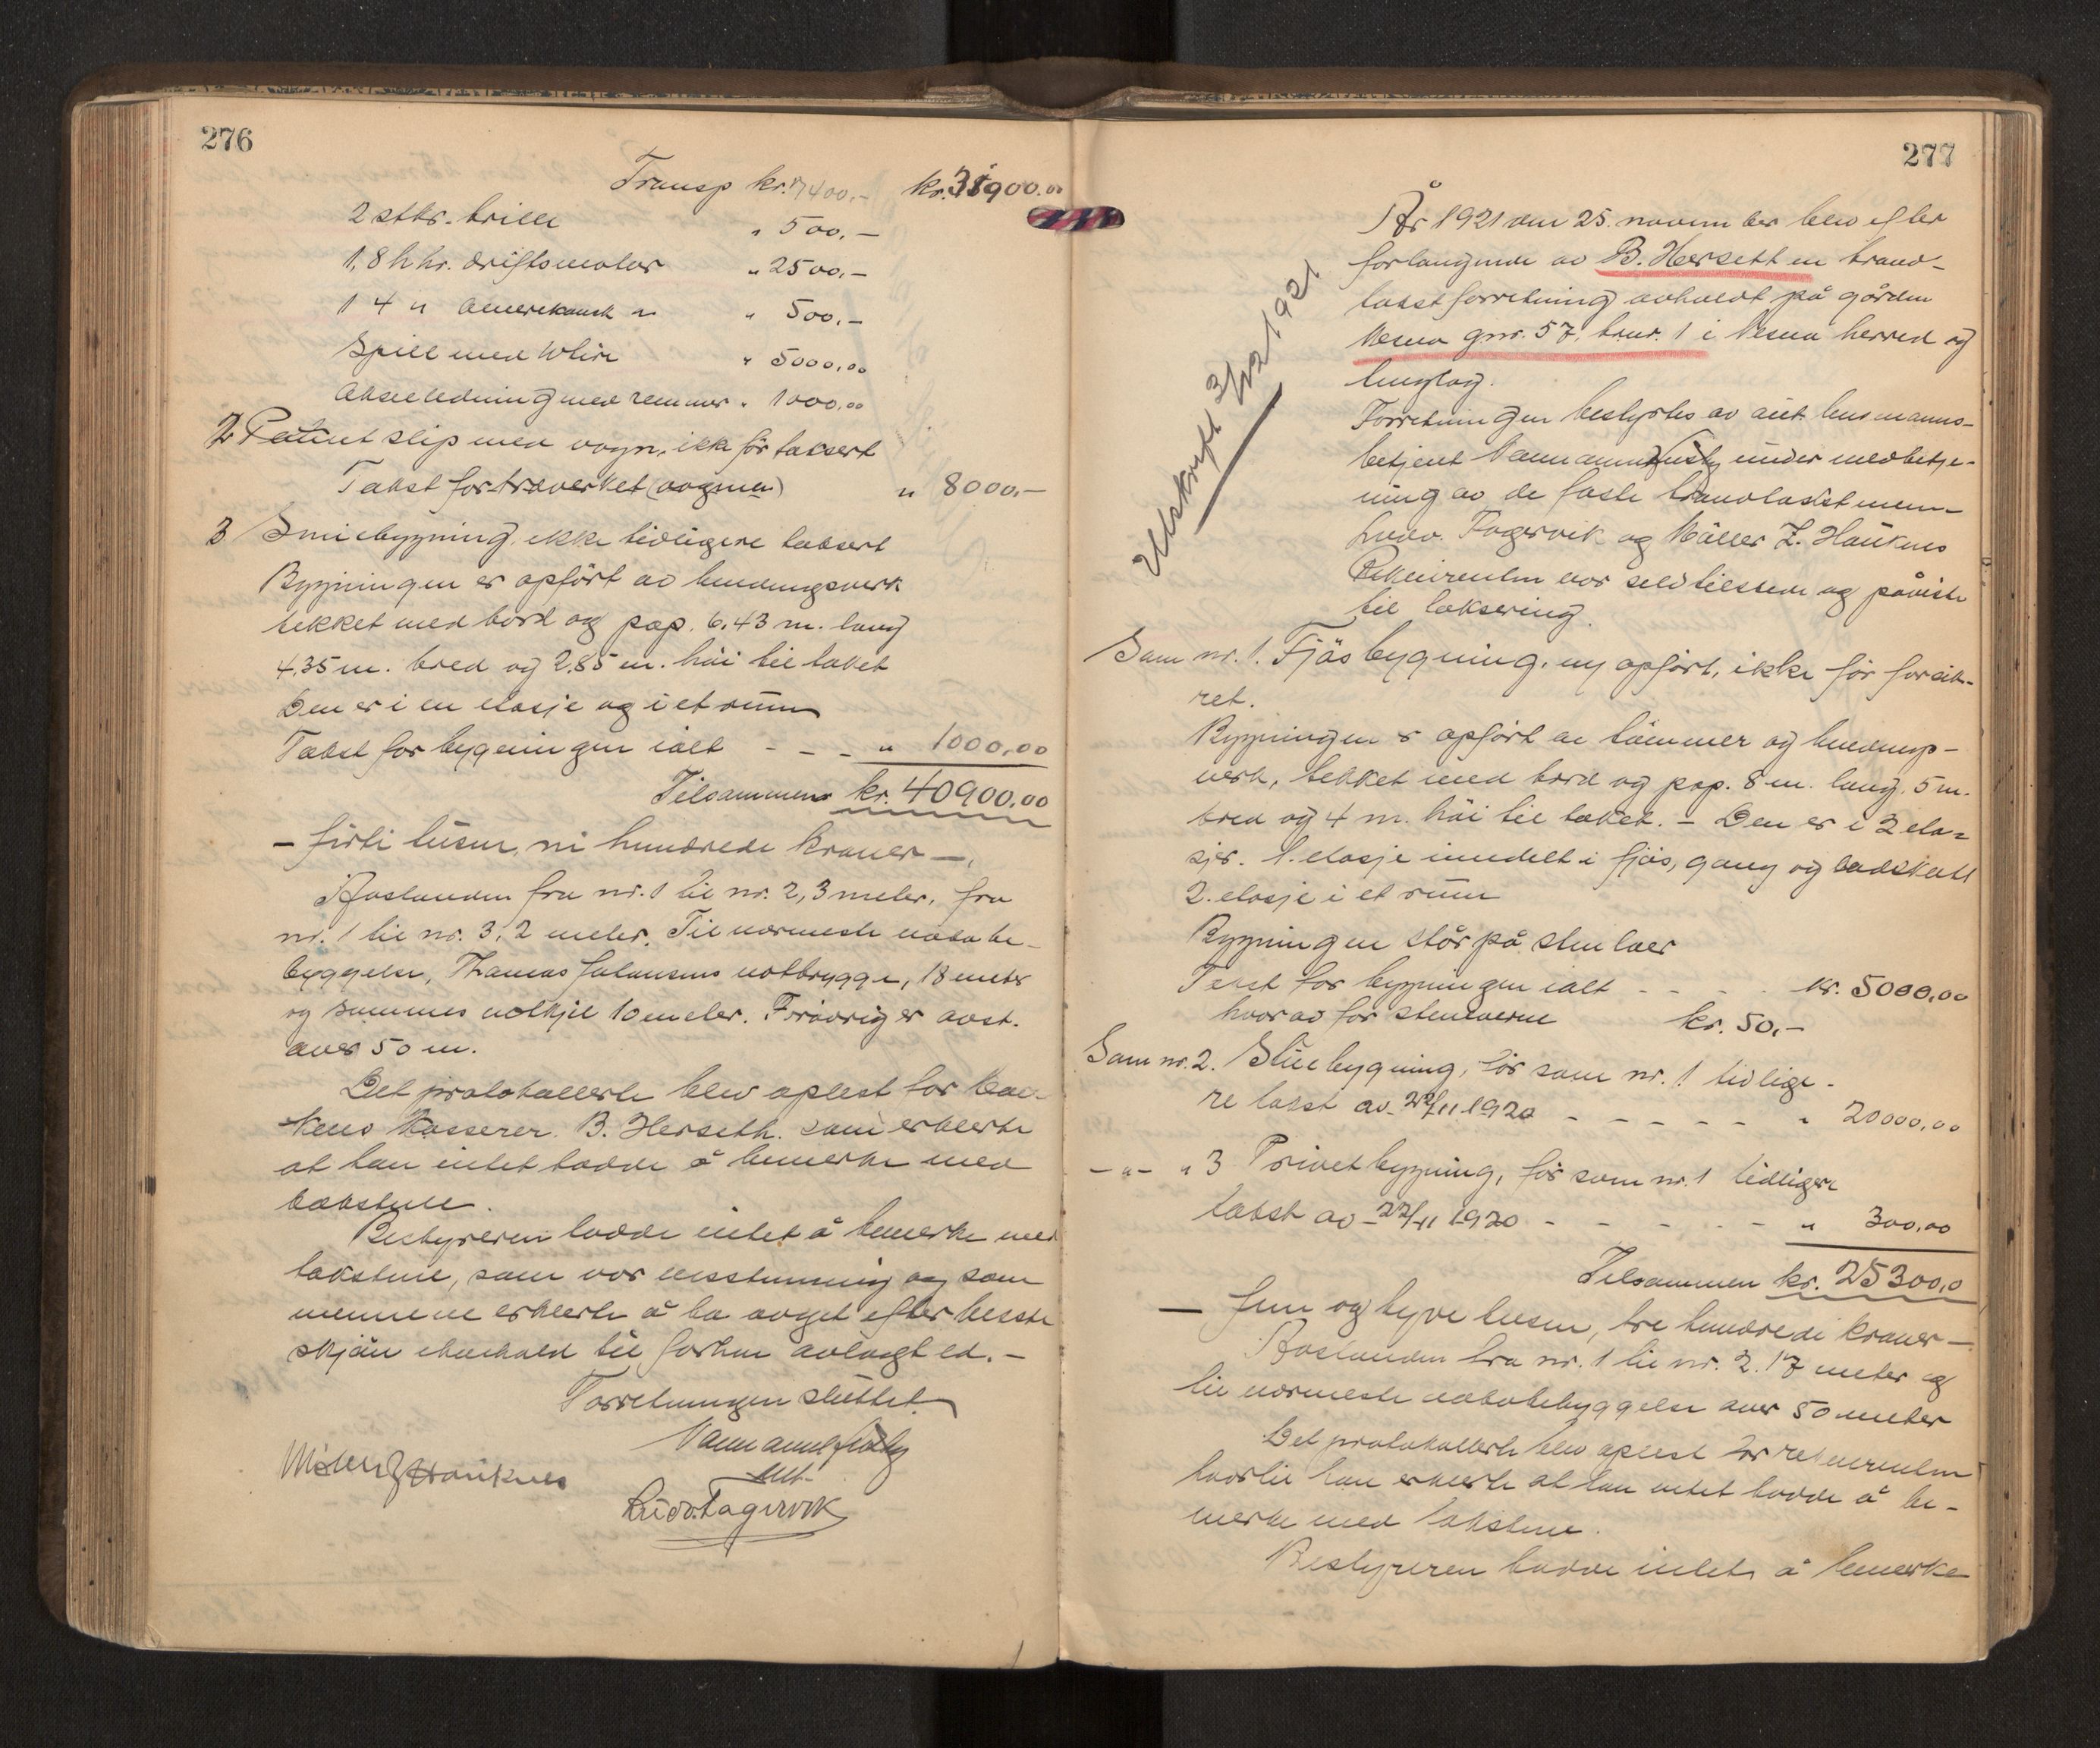 276
Transp kr. 7400.- kr. 31900.00
2 stkr. brille " 500.-
1, 8 h hr. driftsmotor " 2500.-
1 4 " amerekansk " " 500.-
Spill med Wire " 5000.00
Akselledning med remmer " 1000.00
2 Patent slip med vogn, ikke før taksert
Takst for træverket (vognen) " 8000.-
3 Smiebygning, ikke tidligere taksert
Bygningen er opført av bindingsverk
tekket med bord og pap. 6.43 m. lang
4.35 m. bred og 2.85 m. høi til taket
Den er i en etasje og i et rum
Takst for bygningen ialt - - - " 1000.00
Tilsammen kr. 40900.00
- førti tusen, ni hundrede kroner -.
Avstanden fra nr. 1 til nr. 2, 3 meter, fra
nr. 1 til nr. 3, 2 meter. Til nærmeste nabobe-
byggelse, Thomas Johansens notbrygge, 18 meter
og sammes 10 meter. Forøvrig er avst.
over 50 m.
Det protokollerte blev oplest for
kens kasserer B. Herseth. som erklerte
at han intet hadde å bemerke med
takstene.
Bestyreren hadde intet å bemerke med
takstene, som var enstemmig og som
mennene erklerte å ha avget efter beste
skjøn i henhold til forhen avlagt ed. -
Forretningen sluttet.
Ludv. Fagervik
277
År 1921 den 25. november blev efter
forlangende av B. Hersett en brand-
takstforretning avholdt på gården
Nesna gnr. 57, brnr. 1 i Nesna herred og
tinglag.
Utskrift 3/12 1921
Forretningen bestyrtes av aut. lensmanns-
betjent under medbetje-
ning av de faste brandtakstmenn
Ludv. Fagervik og Møller Z. Hauknes
Rekvirenten var selv tilstede og påviste
til taksering.
Som nr. 1. Fjøsbygning, ny opført, ikke før forsik-
ret.
Bygningen er opført av tømmer og bindings-
verk, tekket med bord og pap. 8 m. lang, 5 m.
bred og 4 m. høi til taket. - Den er i 2 eta-
sjer. 1. etasje inndelt i fjøs, gang og vedskott
2. etasje i et rum
Bygningen står på stenlaer
Takst for bygningen ialt - - - - kr. 5000.00
hvorav for stenlaerne kr. 50.-
Som nr. 2. Stuebygning, før som nr. 1 tidlige-
re takst av 22/11 1920 - - - - - " 20000.00
- " - " 3 Privetbygning, før som nr. 1 tidligere
takst av 22/11 1920 - - - - - " 300.00
Tilsammen kr. 25300.0
- fem og tyve tusen, tre hundrede kroner -
Avstanden fra nr. 1 til nr. 2. 17 meter og
til nærmeste nabobebyggelse over 50 meter
Det protokollerte blev oplest for rekvirenten
hvortil han erklerte at han intet hadde å be-
merke med takstene.
Bestyreren hadde intet å bemerke